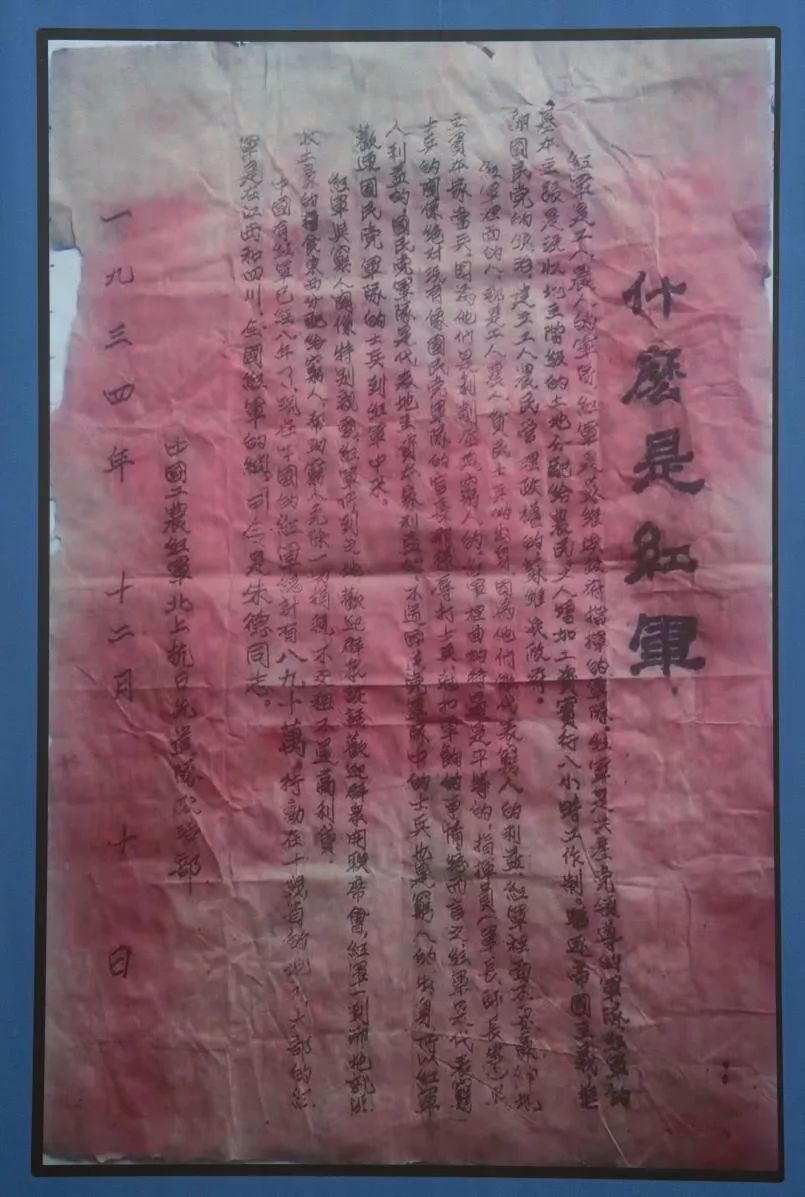 什麼是紅軍
紅軍是工人農人的軍隊，紅軍是蘇維埃政府指揮的軍隊。紅軍是共產党領導的軍隊。紅軍的
基本主張是沒收地主階級的土地分配給農民，工人增加工資實行八小時工作制。驅逐帝國主義
國民党 建立工人農民管理政權的蘇維埃政府。
紅軍裡面的人，都是工人農人貧民士兵的出身，因為他們能代表窮人的利益，紅軍裡面不要
資本家當兵，因為他們是剝削壓迫窮人的，紅軍裡面的待遇是平等的，指揮員（軍長師長
士兵的關係絕对沒有像國民党軍隊的官長 打士兵 扣軍餉的事情，總而言之，紅軍是代表窮
人利益的，國民党軍隊是代表地主資本家利益的，不過國民党軍隊中的士兵也是窮人的出身，所以紅軍
歡迎國民党軍隊的士兵到紅軍中來。
紅軍與窮人關係特別親密，紅軍所到之地歡迎群众談話，歡迎群眾開聯席會，紅軍一到
的糧食東西分配給窮人，幫助窮人免除一切捐稅，不交租不還高利貸。
中國有紅軍已經八年了，現在全國的紅軍總計有八九十萬，行動在十幾省的地方，大部的紅
軍是在江西和四川，全國紅軍的總司令是朱德同志。
中國工農紅軍北上抗日先遣隊政治部
一九三四年 十二月 十 日